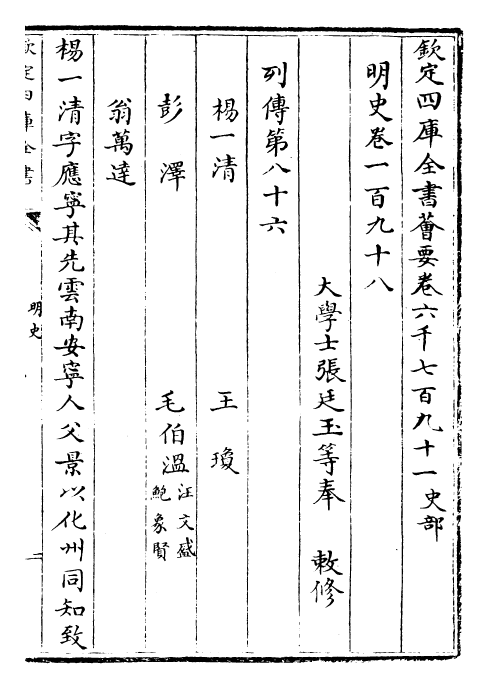 欽定四庫全書薈要卷六千七百九十一史部
明史卷一百九十八
大學士張廷玉等奉　敕修
列傳第八十六
楊一清　王瓊
彭澤　毛伯溫汪文盛
鮑象賢
翁萬達
楊一清字應寧其先雲南安寧人父景以化州同知致
欽定四庫全書
明史